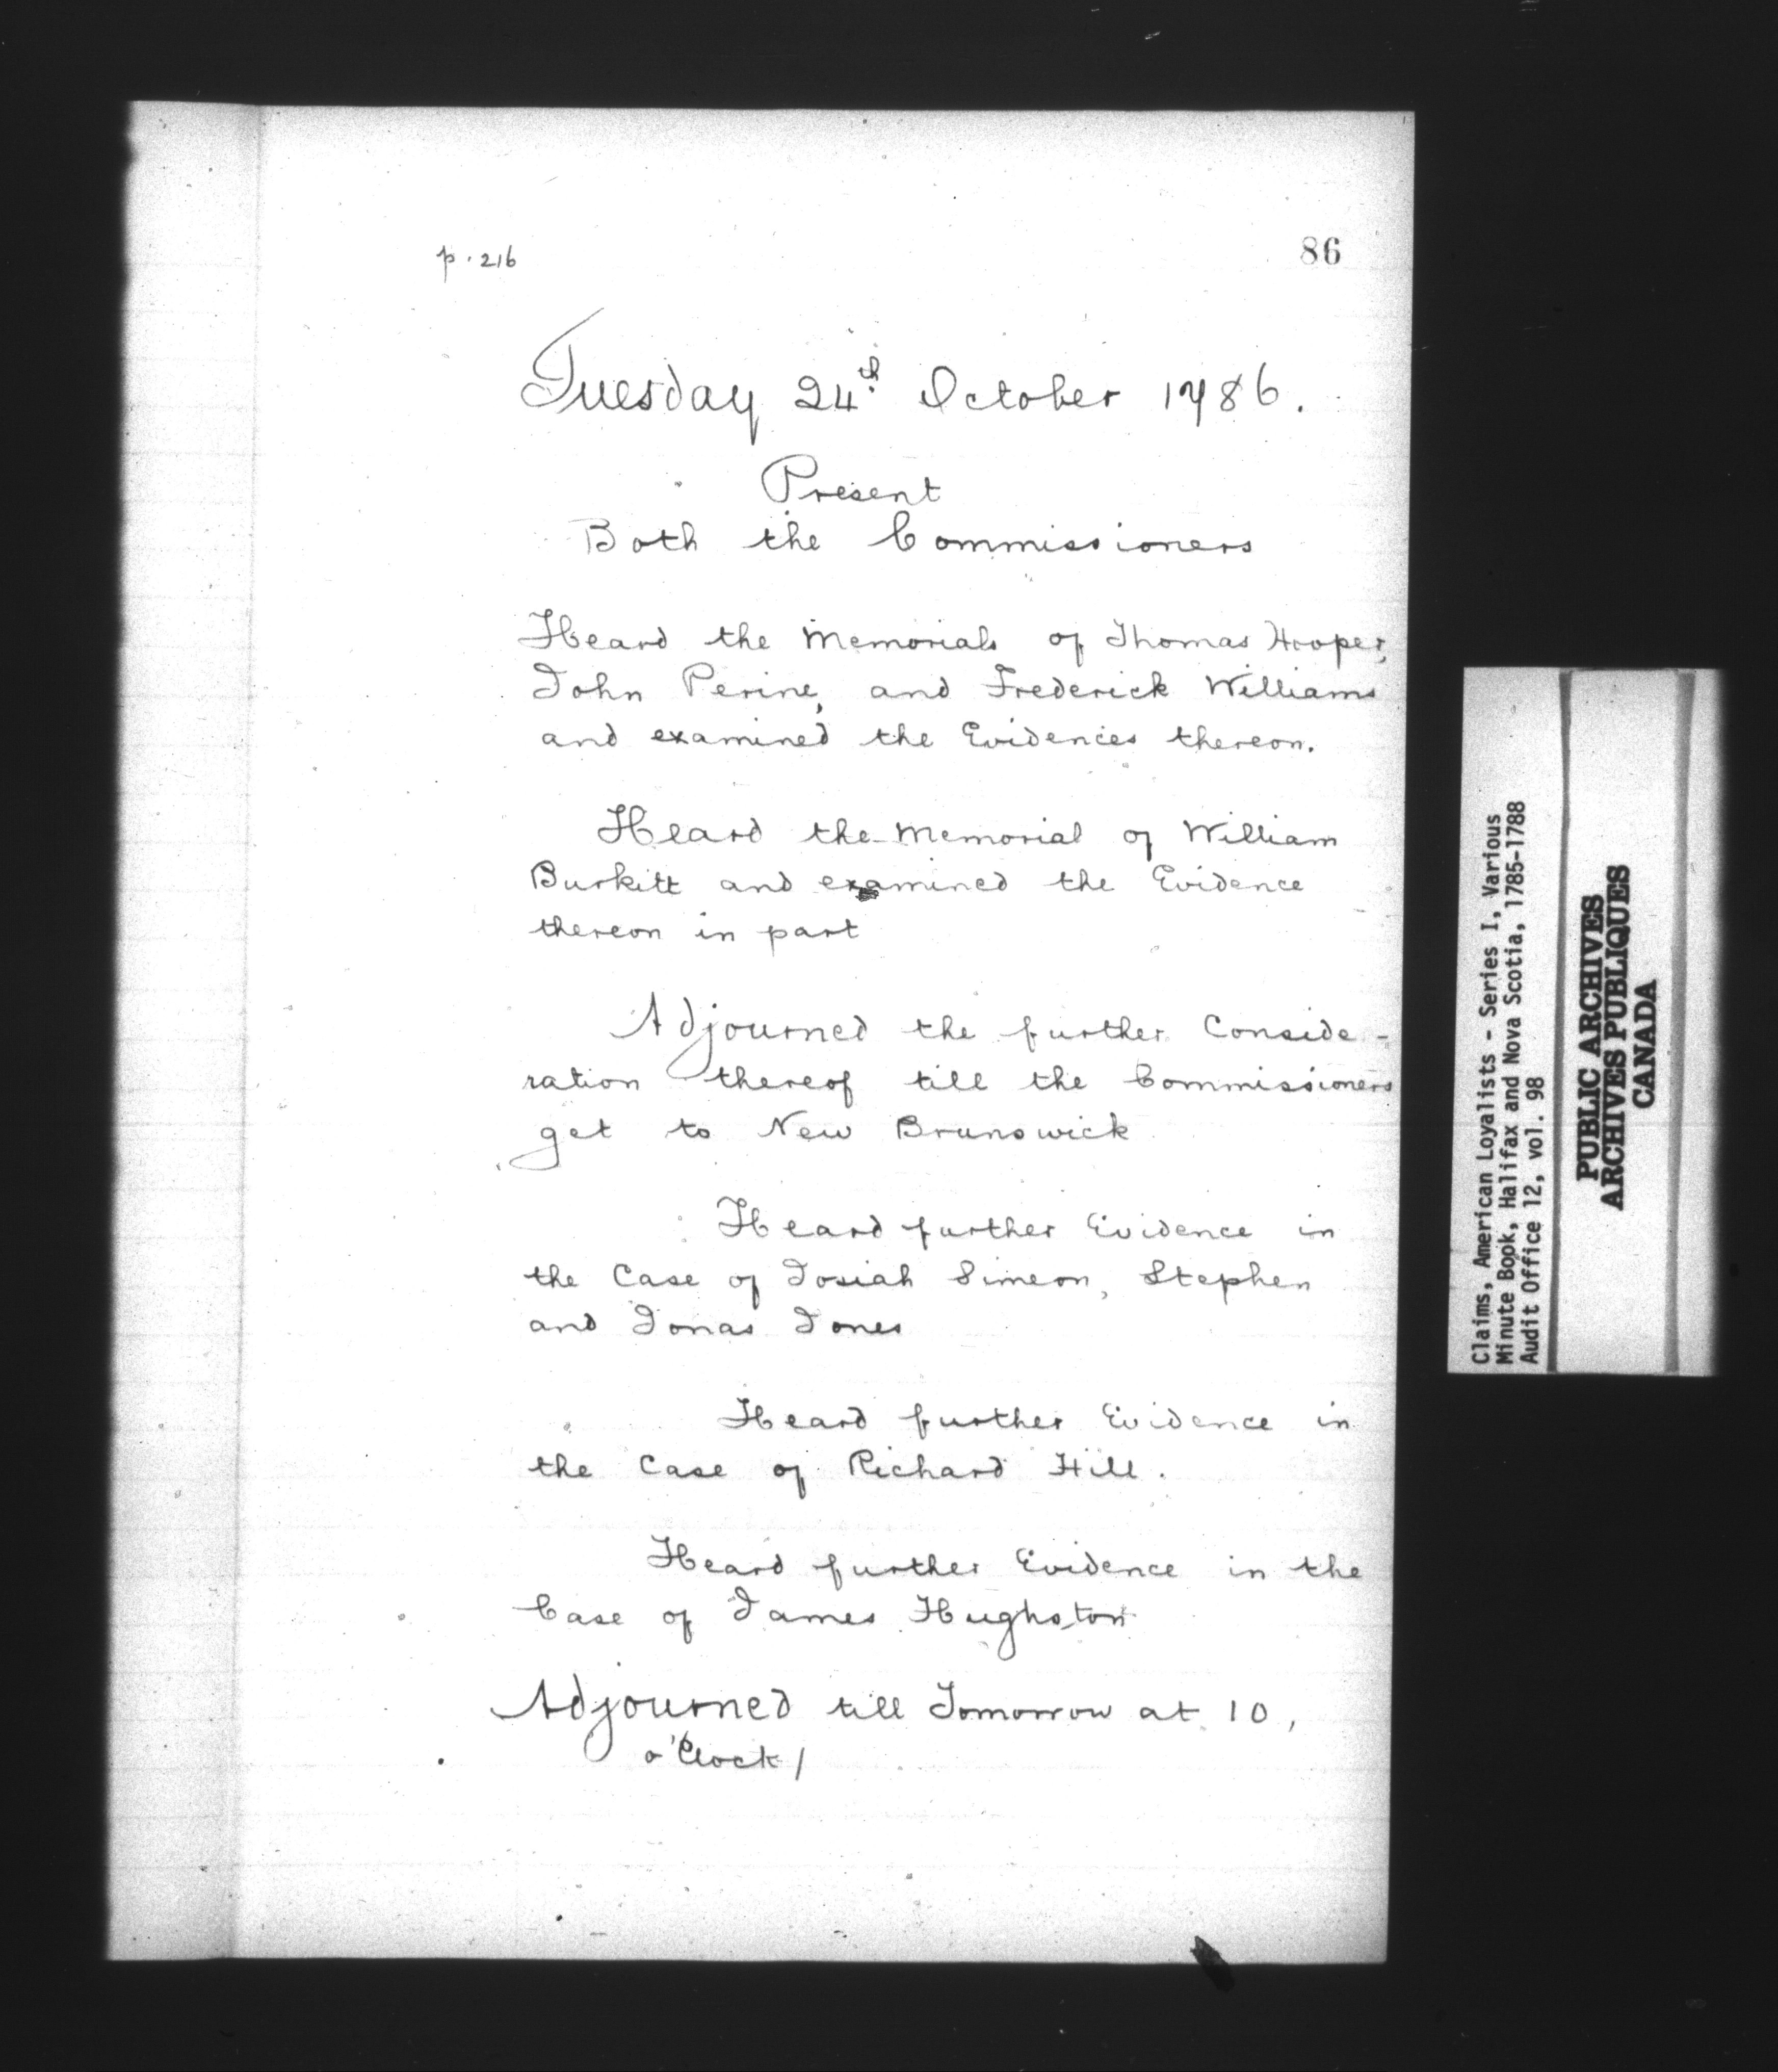 p. 216
86
Tuesday 24th October 1786.
Present
Both the Commissioners
Heard the Memorials of Thomas Hooper,
John Perine, and Frederick Williams
and examined the Evidences thereon.
Heard the Memorial of William
Burkitt and examined the Evidence
thereon in part
Adjourned the further Conside-
ration thereof till the Commissioners
get to New Brunswick
Heard further Evidence in
the Case of Josiah Simeon, Stephen
and Jonas Jones
Heard further Evidence in
the Case of Richard Hill.
Heard further Evidence in the
Case of James Hughston
Adjourned till Tomorrow at 10,
o'Clock/
Claims, American Loyalists - Series I, Various
Minute Book, Halifax and Nova Scotia, 1785-1788
Audit Office 12, vol. 98
PUBLIC ARCHIVES
ARCHIVES PUBLIQUES
CANADA